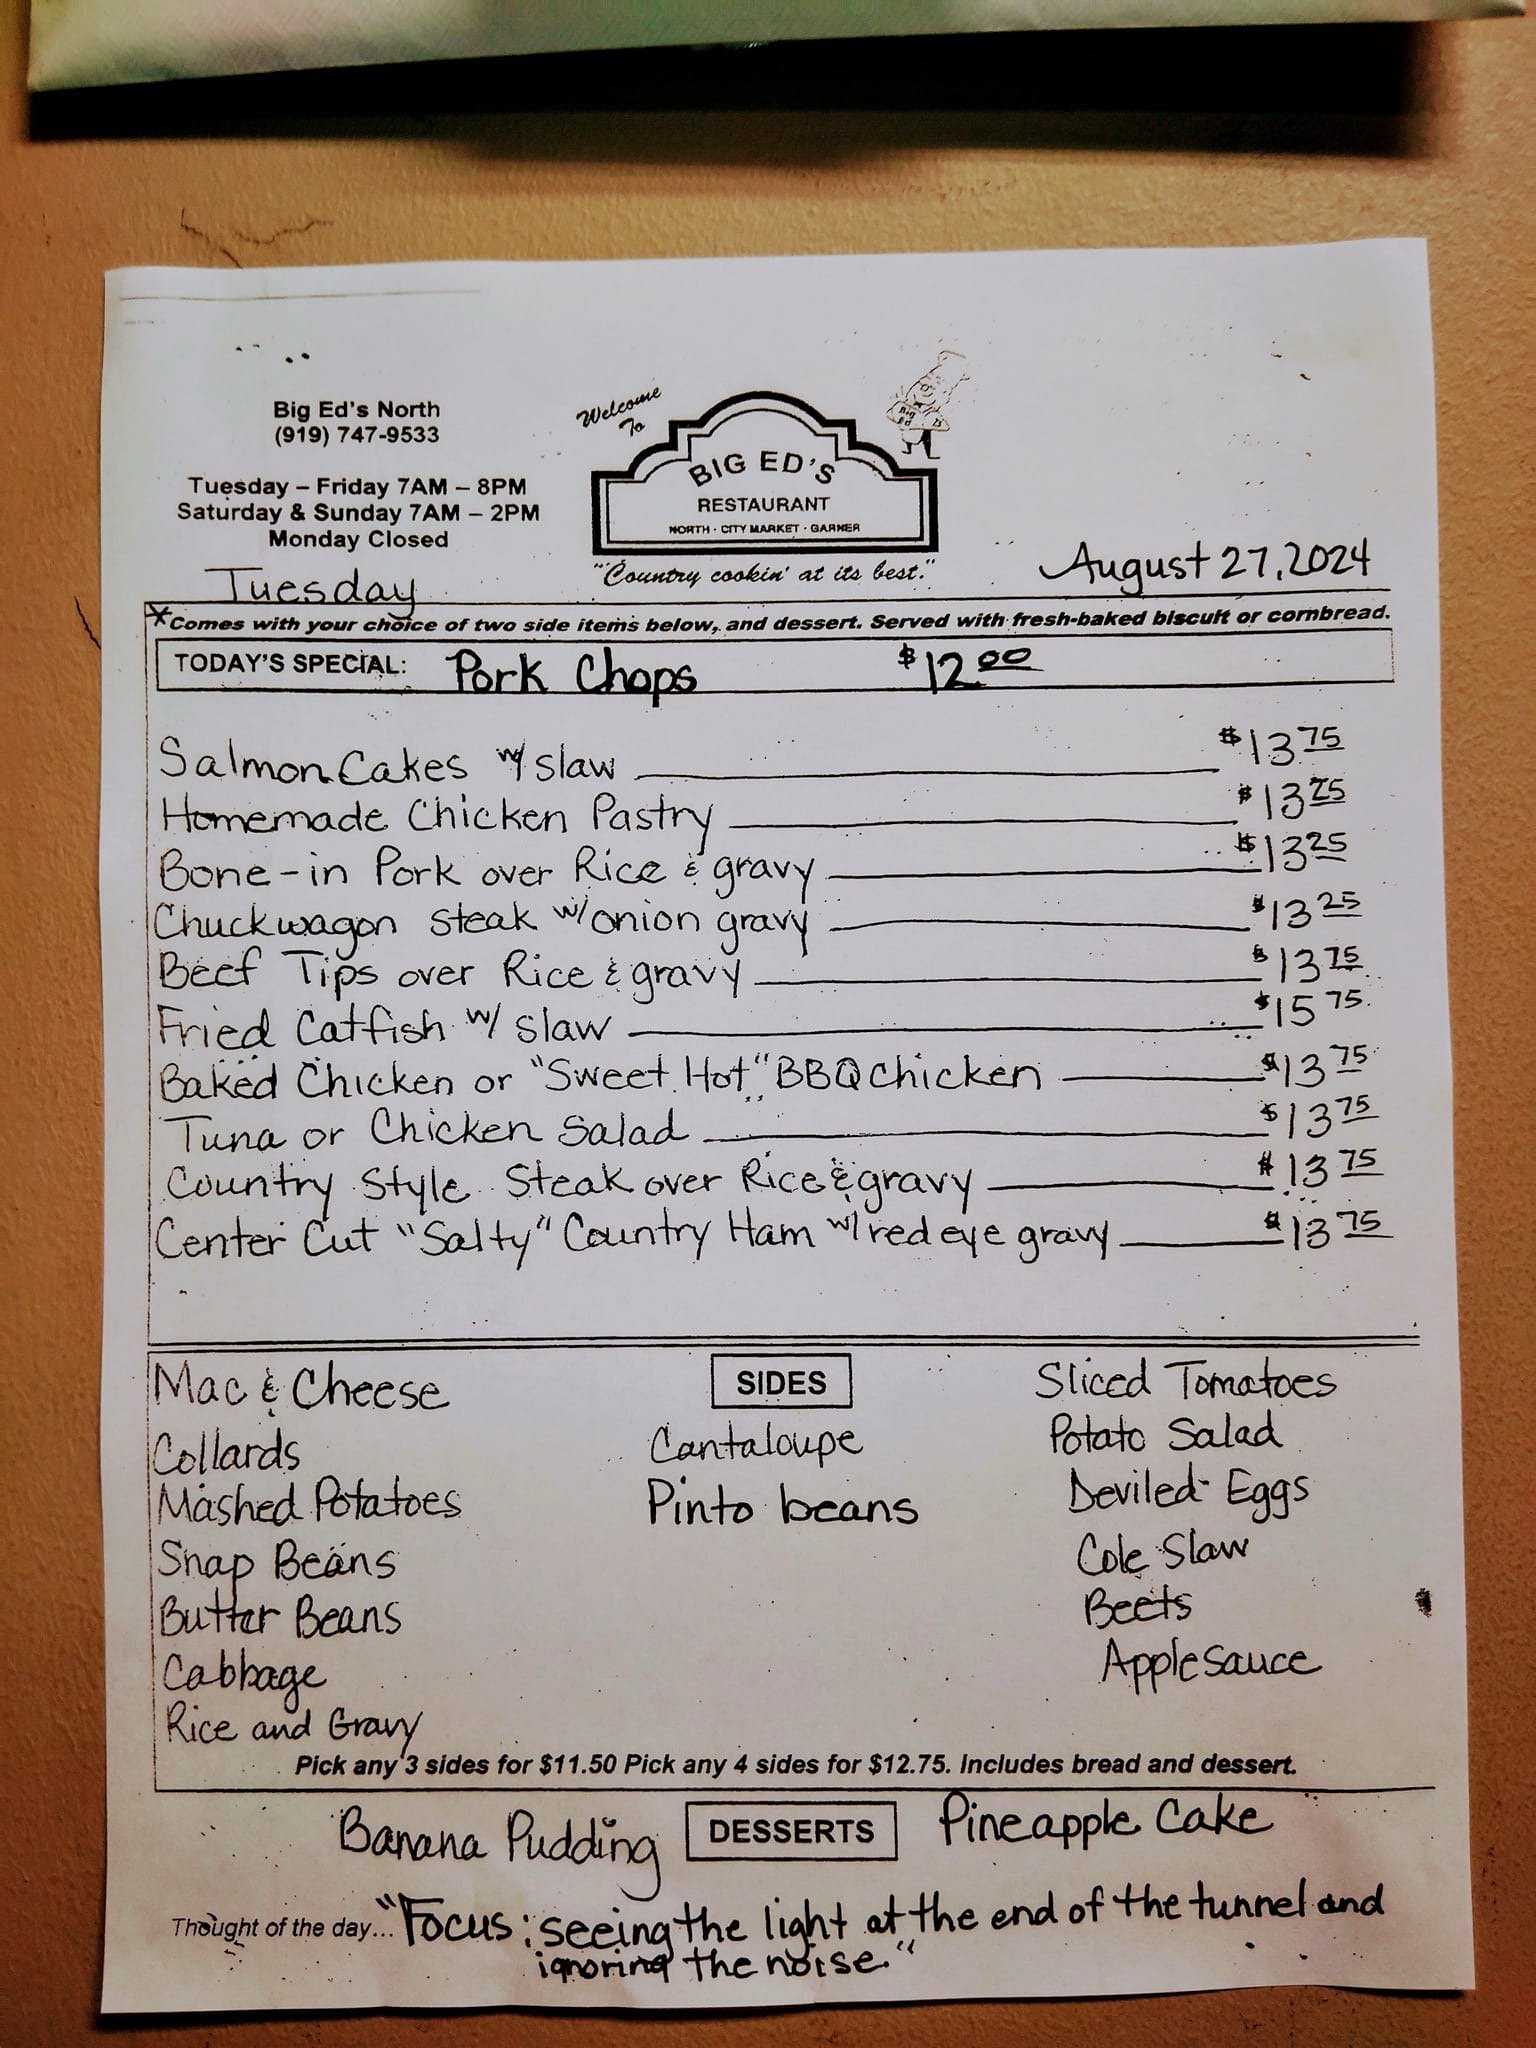 Big Ed's North
(919) 747-9533
Tuesday – Friday 7AM – 8PM
Saturday & Sunday 7AM – 2PM
Monday Closed
Welcome
To
BIG ED'S
RESTAURANT
NORTH · CITY MARKET · GARNER
"Country cookin' at its best."
Big Ed
Tuesday
August 27, 2024
*Comes with your choice of two side items below, and dessert. Served with fresh-baked biscuit or cornbread.
TODAY'S SPECIAL: Pork Chops $12.00
Salmon Cakes w/ slaw $13 75
Homemade Chicken Pastry $13 25
Bone-in Pork over Rice & gravy $13 25
Chuckwagon steak w/ onion gravy $13 25
Beef Tips over Rice & gravy $13 75
Fried Catfish w/ slaw $15 75
Baked Chicken or "Sweet Hot" BBQ chicken $13 75
Tuna or Chicken Salad $13 75
Country Style Steak over Rice & gravy $13 75
Center Cut "Salty" Country Ham w/ red eye gravy $13 75
SIDES
Mac & Cheese
Collards
Mashed Potatoes
Snap Beans
Butter Beans
Cabbage
Rice and Gravy
Cantaloupe
Pinto beans
Sliced Tomatoes
Potato Salad
Deviled Eggs
Cole Slaw
Beets
Applesauce
Pick any 3 sides for $11.50 Pick any 4 sides for $12.75. Includes bread and dessert.
Banana Pudding DESSERTS Pineapple Cake
Thought of the day... "Focus: seeing the light at the end of the tunnel and
ignoring the noise."